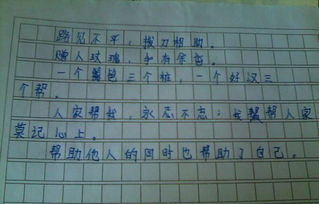 路见不平，拔刀相助。
赠人玫瑰，手有余香。
一个篱笆三个桩，一个好汉三
个帮。
人家帮我，永志不忘；我帮人家
莫记心上。
帮助他人的同时也帮助了自己。